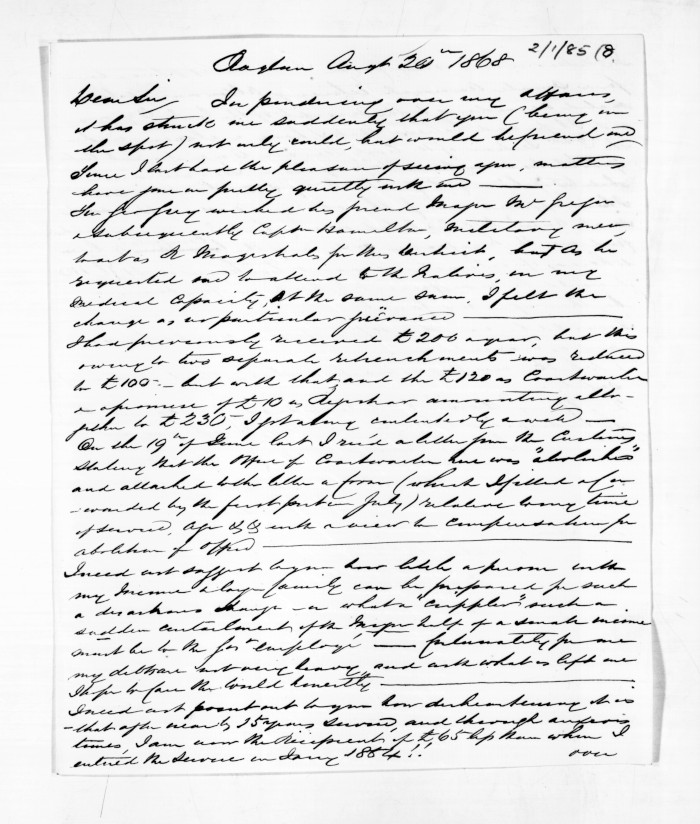 2/1/85 (8.
Raglan Augt 20th 1868
Dear Sir, In pondering over my affairs,
it has struck me suddenly that you (being on
the spot) not only could, but would befriend me
Since I last had the pleasure of seeing you, matters
have gone on pretty quietly with me —
Sir Geo Grey wished his friend Major McGregor
& subsequently Captn Hamilton, Military men,
to act as R Magistrates for this District, but as he
requested me to attend to the Natives, in my
Medical Capacity, at the same sum, I felt the
change as no particular grievance —
I had previously received £200 a year, but this
owing to two separate retrenchments was reduced
to £100 — but with that, and the £120 as Coastwaiter
& a promise of £10 as Registrar amounting alto-
gether to £230, I got along contentedly —
On the 19th of June last I rec'd a letter from the Customs
stating that the Office of Coastwaiter here was "abolished"
and attached to the letter a form (which I filled & for
-warded by the first post in July) relative to my time
of service, age &c &c with a view to compensation for
abolition of Office —
I need not suggest to you how little a person with
my Income & large family can be prepared for such
a disastrous change — or what a "crippler" such a
sudden curtailment of the Major half of a small income
must be to the Govt employé — Fortunately for me
my debts are not very heavy, and with what is left me
I hope to face the World honestly —
I need not point out to you how disheartening it is
that after nearly 15 years service, and through anxious
times, I am now the Recipient of £65 less than when I
entered the Service in Jany 1854!!
over